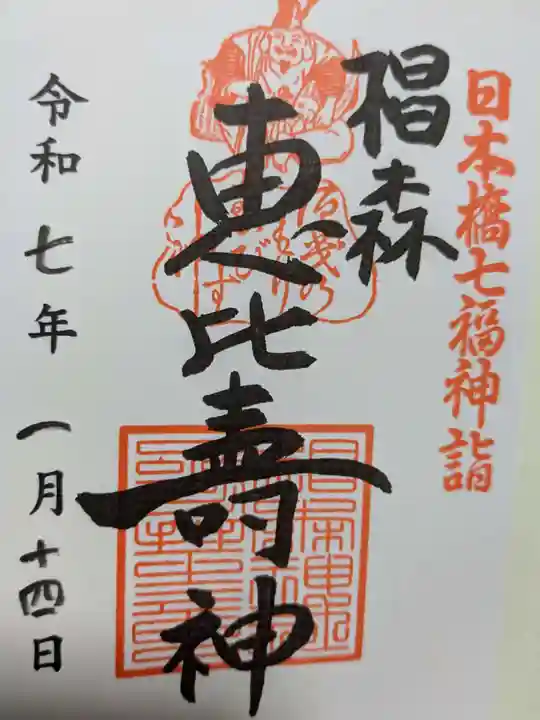 日本橋七福神詣
椙森
恵比壽神
令和七年一月十四日